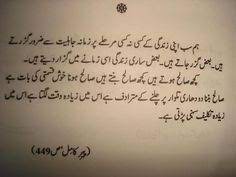 ہم سب اپنی زندگی کے کسی نہ کسی مرحلے پر زمانہ جاہلیت سے ضرور گزرتے
ہیں۔ بعض گزر جاتے ہیں۔ بعض ساری زندگی اسی زمانے میں گزار دیتے ہیں۔
کچھ صالح ہوتے ہیں کچھ صالح بنتے ہیں صالح ہونا خوش قسمتی کی بات ہے
صالح بننا دو دھاری تلوار پر چلنے کے مترادف ہے اس میں زیادہ وقت لگتا ہے اس میں
زیادہ تکلیف سہنی پڑتی ہے۔
(پیر کامل ؐ ص 449)